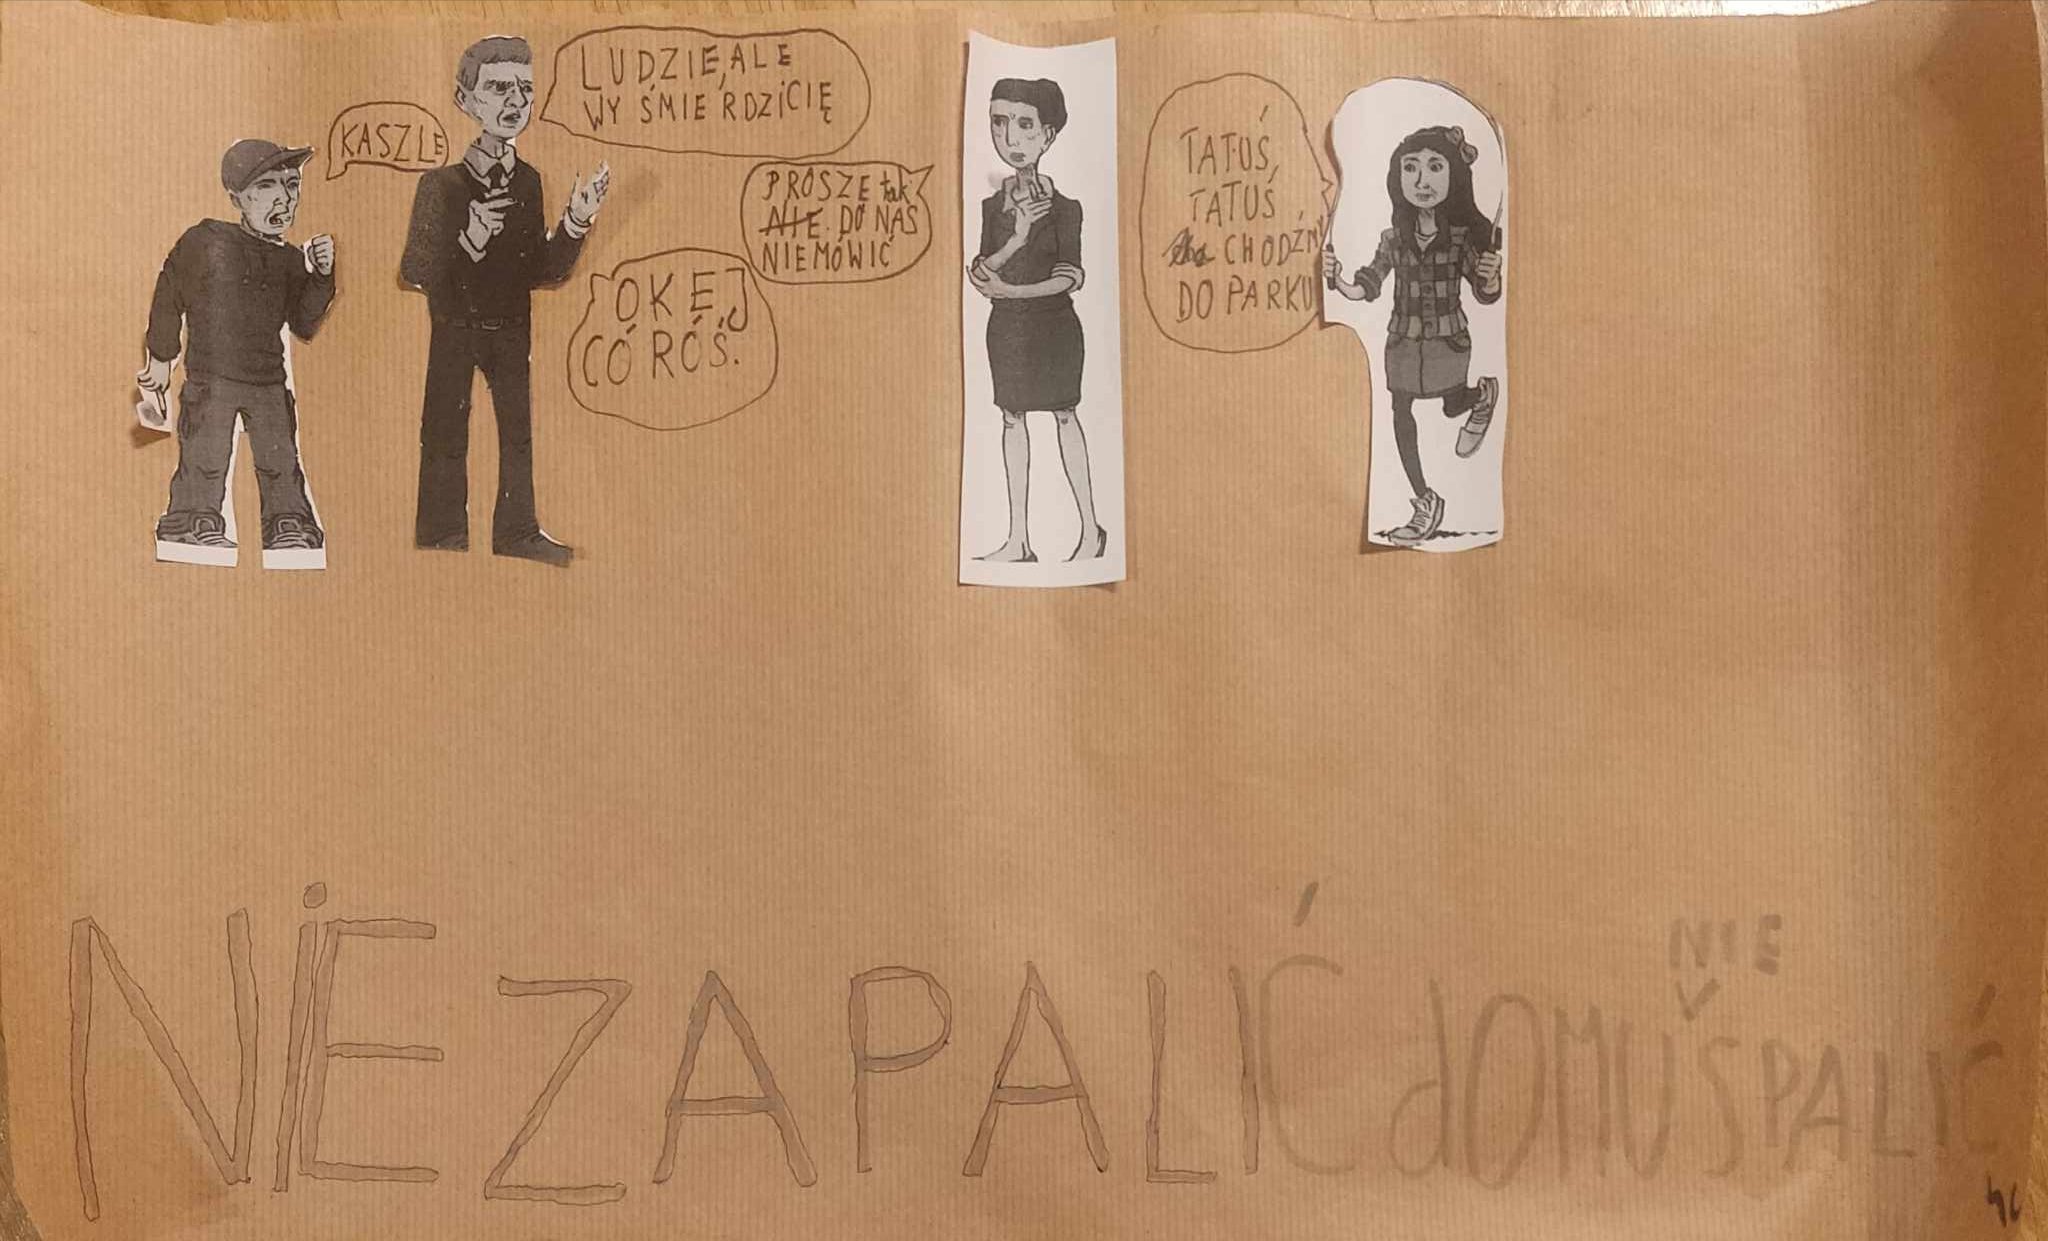 KASZLE
LUDZIE, ALE
WY ŚMIERDZICIĘ
PROSZE tak
NIE DO NAS
NIEMÓWIĆ
OKEJ
CÓRÓŚ.
TATUŚ,
TATUŚ
CHODŹMY
DO PARKU
NIE ZAPALIĆ dOMU NIE SPALIĆ